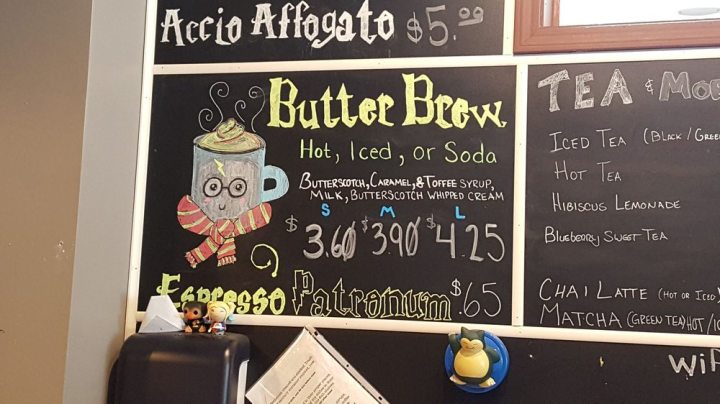 Accio Affogato $5.00
Butter Brew
Hot, Iced, or Soda
Butterscotch, Caramel, & Toffee syrup,
Milk, Butterscotch whipped cream
S M L
$3.60 $3.90 $4.25
Espresso Patronum $.65
TEA & Mo
Iced Tea (Black / Gree
Hot Tea
Hibiscus Lemonade
Blueberry Sweet Tea
Chai Latte (Hot or Iced)
Matcha (Green Tea) Hot / Ic
Wi